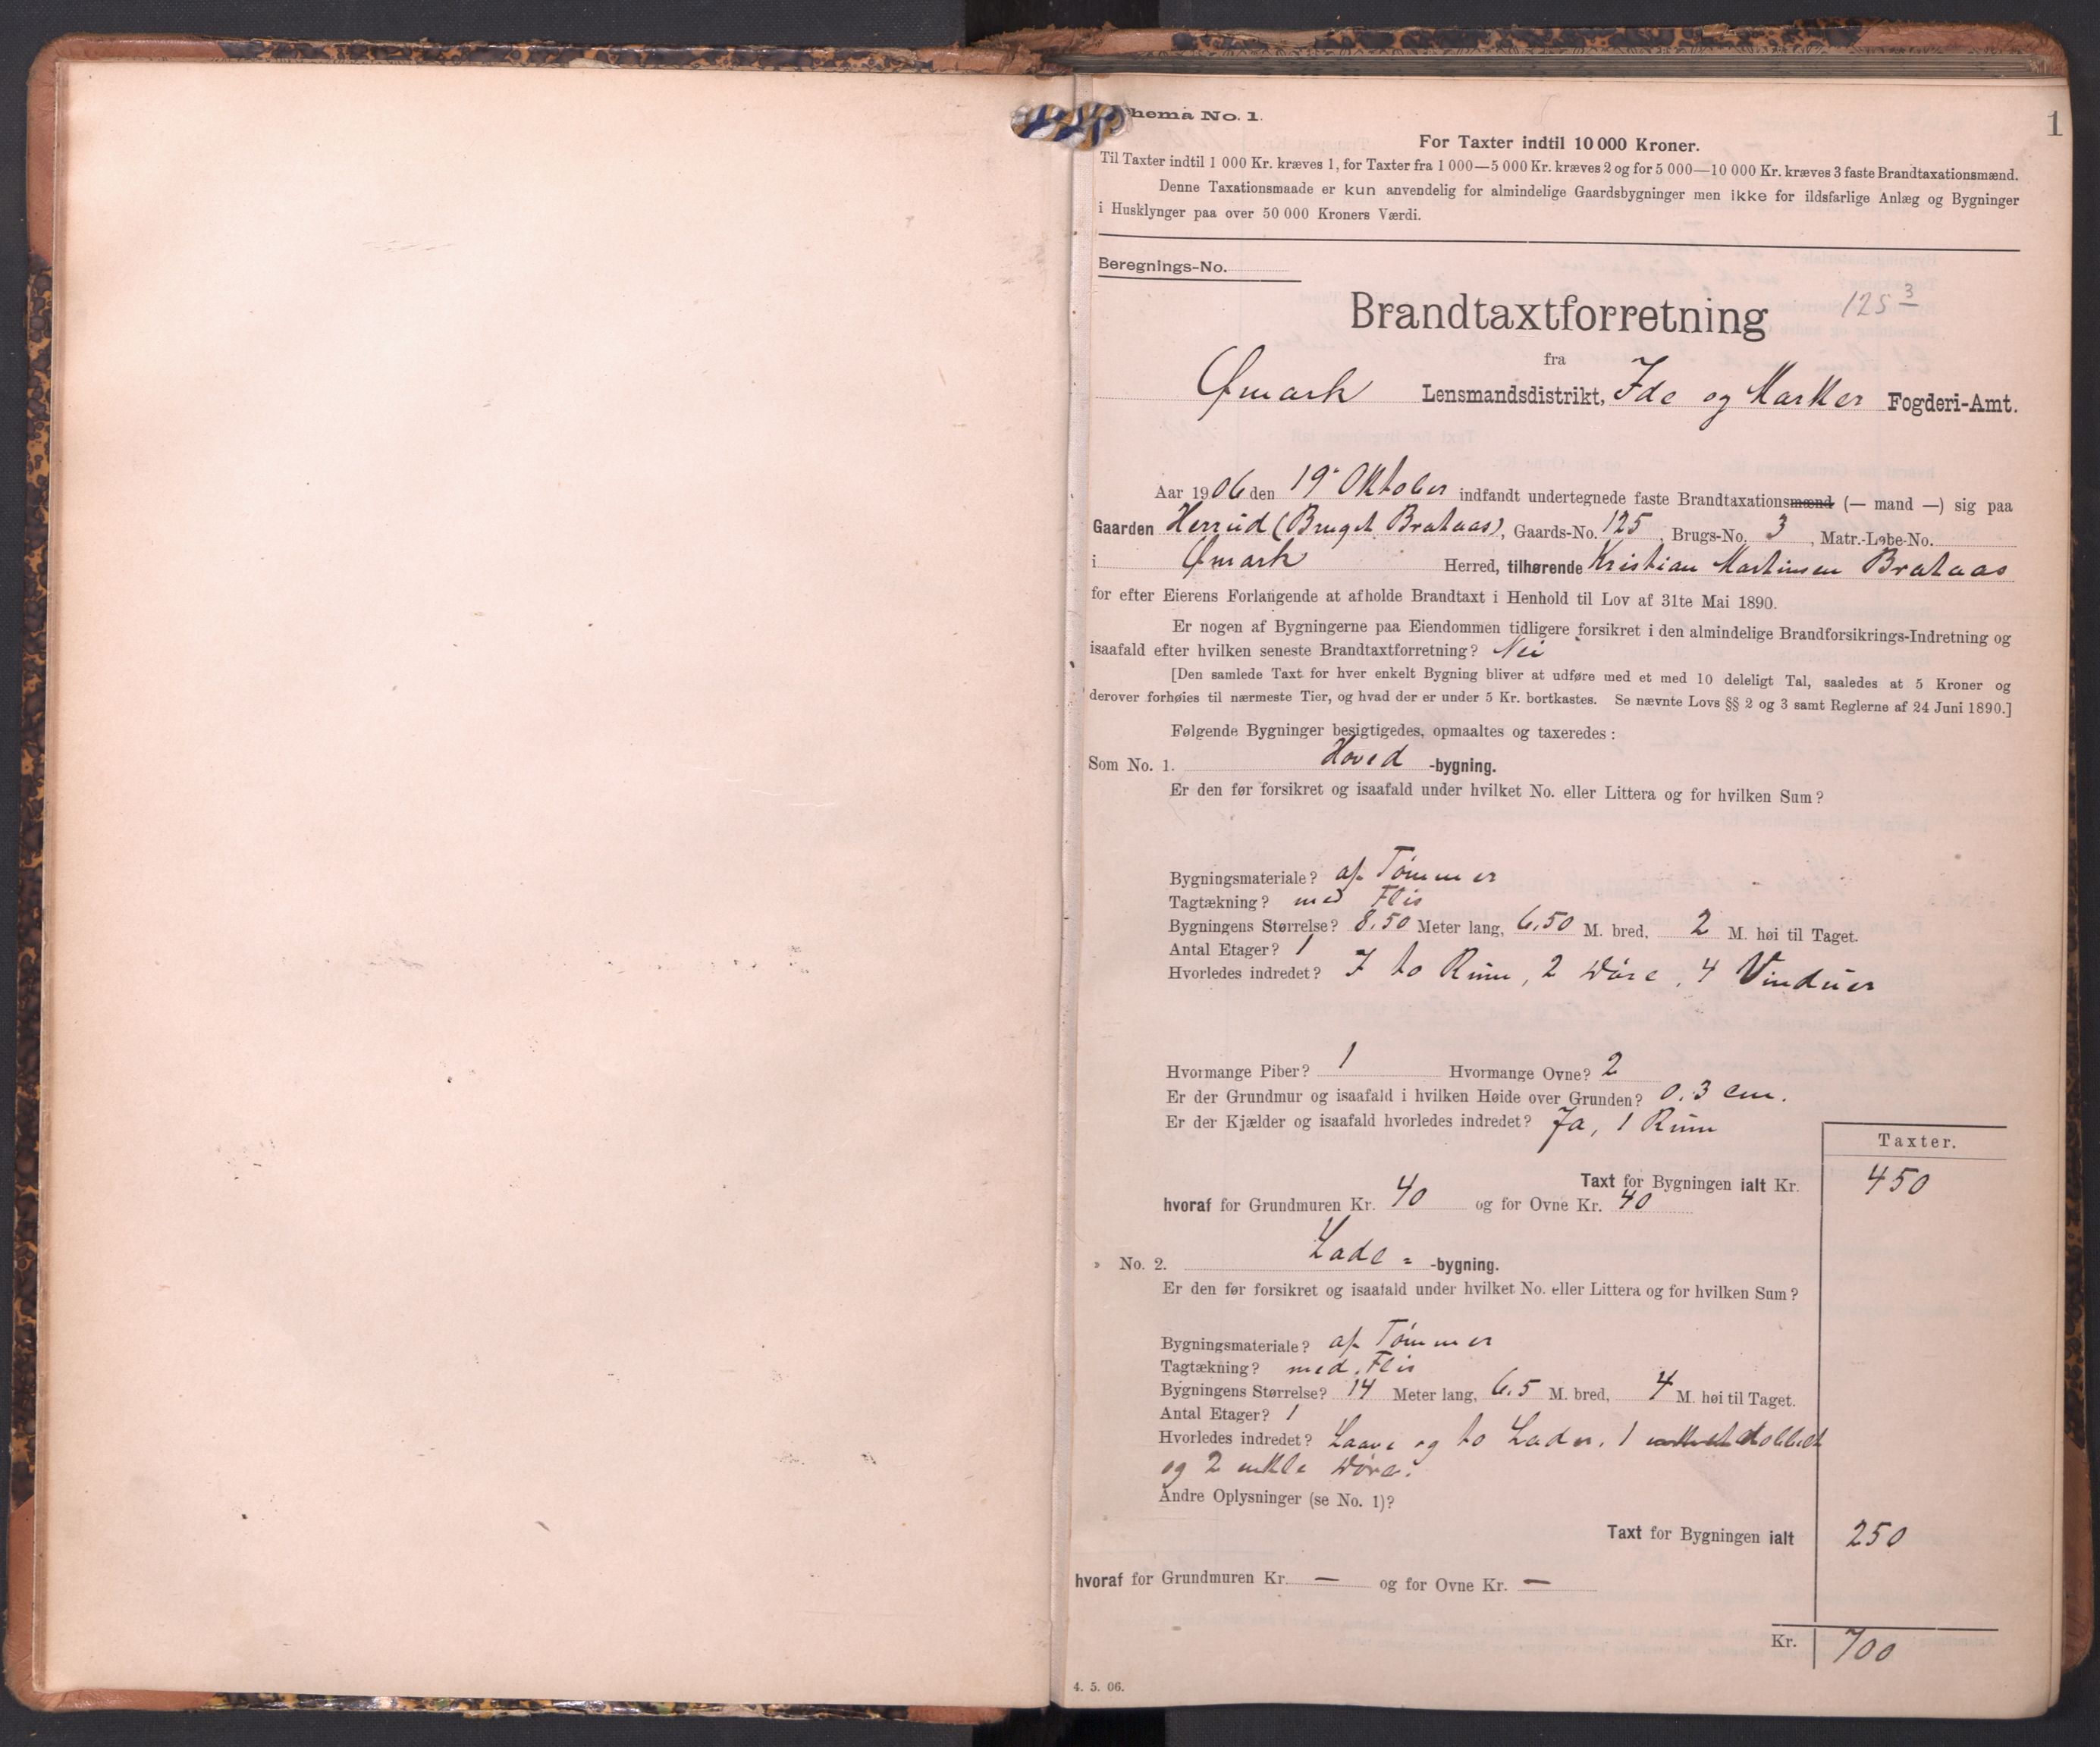 1
hema No. 1.
For Taxter indtil 10 000 Kroner.
Til Taxter indtil 1 000 Kr. kræves 1, for Taxter fra 1 000—5 000 Kr. kræves 2 og for 5 000—10 000 Kr. kræves 3 faste Brandtaxationsmænd.
Denne Taxationsmaade er kun anvendelig for almindelige Gaardsbygninger men ikke for ildsfarlige Anlæg og Bygninger
i Husklynger paa over 50 000 Kroners Værdi.
Beregnings-No.
Brandtaxtforretning 125 3
fra
Ømark Lensmandsdistrikt, Ide og Marker Fogderi-Amt.
Aar 1906 den 19' Oktober indfandt undertegnede faste Brandtaxationsmænd (— mand —) sig paa
Gaarden Herrud (Bruget Brataas), Gaards-No. 125, Brugs-No. 3, Matr.-Løbe-No.
i Ømark Herred, tilhørende Kristian Martinsen Brataas
for efter Eierens Forlangende at afholde Brandtaxt i Henhold til Lov af 31te Mai 1890.
Er nogen af Bygningerne paa Eiendommen tidligere forsikret i den almindelige Brandforsikrings-Indretning og
isaafald efter hvilken seneste Brandtaxtforretning? Nei
[Den samlede Taxt for hver enkelt Bygning bliver at udføre med et med 10 deleligt Tal, saaledes at 5 Kroner og
derover forhøies til nærmeste Tier, og hvad der er under 5 Kr. bortkastes. Se nævnte Lovs §§ 2 og 3 samt Reglerne af 24 Juni 1890.]
Følgende Bygninger besigtigedes, opmaaltes og taxeredes :
Som No. 1. Hoved -bygning.
Er den før forsikret og isaafald under hvilket No. eller Littera og for hvilken Sum?
Bygningsmateriale? af Tømmer
Tagtækning? med Flis
Bygningens Størrelse? 8,50 Meter lang, 6,50 M. bred, 2 M. høi til Taget.
Antal Etager? 1
Hvorledes indredet? I to Rum, 2 Døre, 4 Vinduer
Hvormange Piber? 1 Hvormange Ovne? 2
Er der Grundmur og isaafald i hvilken Høide over Grunden? 0.3 cm.
Er der Kjælder og isaafald hvorledes indredet? Ja, 1 Rum
Taxter.
Taxt for Bygningen ialt Kr. 450
hvoraf for Grundmuren Kr. 40 og for Ovne Kr. 40
» No. 2. Lade = -bygning.
Er den før forsikret og isaafald under hvilket No. eller Littera og for hvilken Sum?
Bygningsmateriale? af Tømmer
Tagtækning? med Flis
Bygningens Størrelse? 14 Meter lang, 6,5 M. bred, 4 M. høi til Taget.
Antal Etager? 1
Hvorledes indredet? Laave og to Lader. 1 enkelt dobbelt
og 2 enkle Døre.
Andre Oplysninger (se No. 1)?
Taxt for Bygningen ialt 250
hvoraf for Grundmuren Kr. — og for Ovne Kr. —
Kr. 700
4. 5. 06.